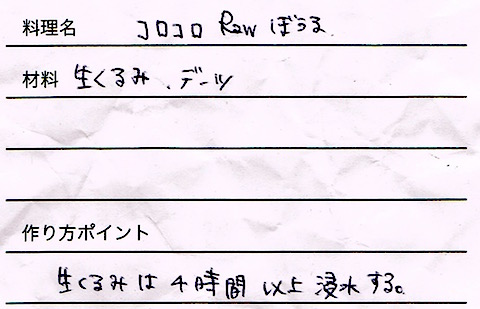 料理名 コロコロ Rawぼうる
材料 生くるみ、デーツ
作り方ポイント
生くるみは4時間以上浸水する。